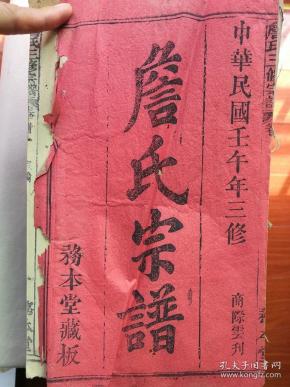 中華民國壬午年三修
商際雲刊
詹氏宗譜
務本堂藏板
詹氏三修宗譜
孔夫子旧书网